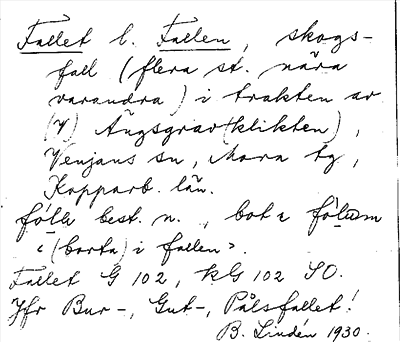 Fallet l. Fallen, skogs-
fall (flera st. nära
varandra) i trakten av
(V) Ängsgrav(klikten),
Venjans sn, Mora tg,
Kopparb. län.
best. n., bot
‹(borta) i fallen›
Fallet G 102, kG 102 SO.
Jfr Bur-, Gut-, Pålsfallet!
B. Lindén 1930.